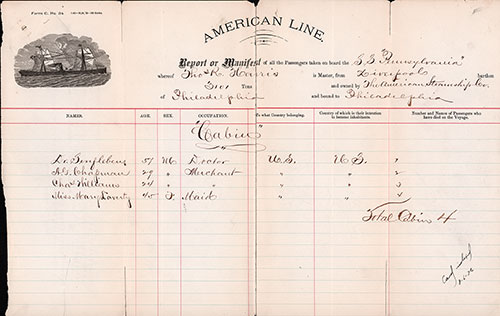 Form C. No. 3a
AMERICAN LINE.
Report or Manifest of all the Passengers taken on board the S.S. "Pennsylvania"
whereof Thos. R. Harris is Master, from Liverpool burthen
3101 Tons and owned by The American Steamship Co.
of Philadelphia and bound to Philadelphia
NAMES. AGE. SEX. OCCUPATION. To what Country belonging. Country of which is their intention to become inhabitants. Number and Names of Passengers who have died on the Voyage.
"Cabin"
M Doctor U.S. U.S. 1
A.G. Chapman 29 " Merchant " " 2
Chas. Williams 24 " " " " 3
Miss Mary 45 F. Maid " " 4
Total Cabin 4